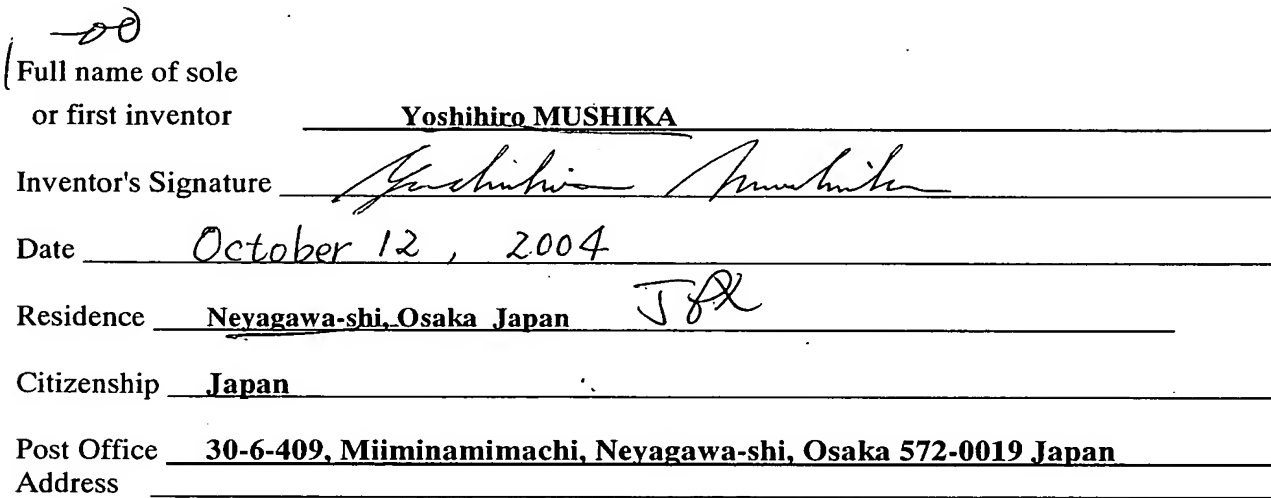 1-00
Full name of sole
or first inventor Yoshihiro MUSHIKA
Inventor's Signature Yoshihiro Mushika
Date October 12, 2004
Residence Neyagawa-shi, Osaka Japan JPX
Citizenship Japan
Post Office 30-6-409, Miiminamimachi, Neyagawa-shi, Osaka 572-0019 Japan
Address